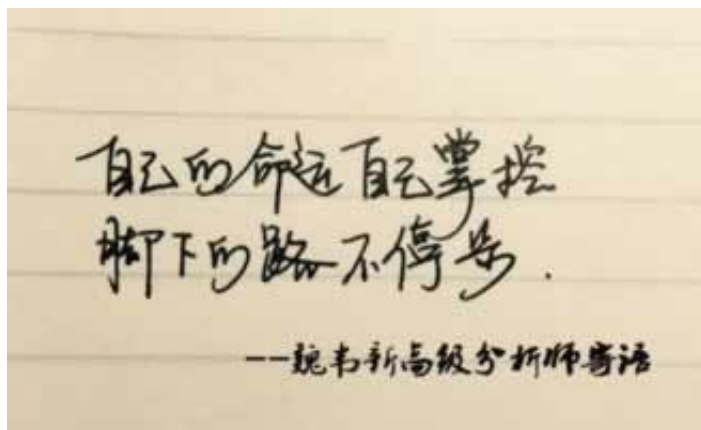 自己的命运自己掌控
脚下的路不停歩.
--魏韦新高级分析师寄语